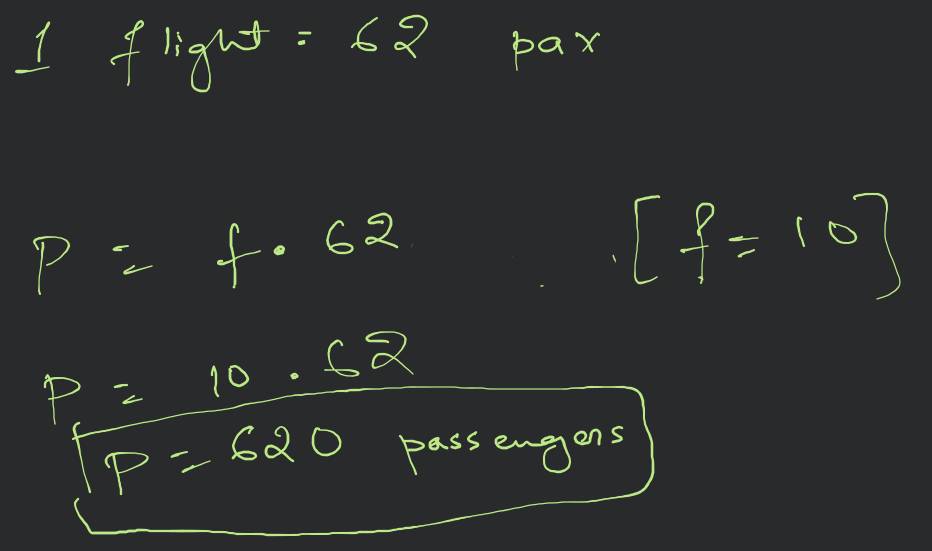 1 flight = 62 pax
P = f · 62 [f = 10]
P = 10 · 62
P = 620 passengers